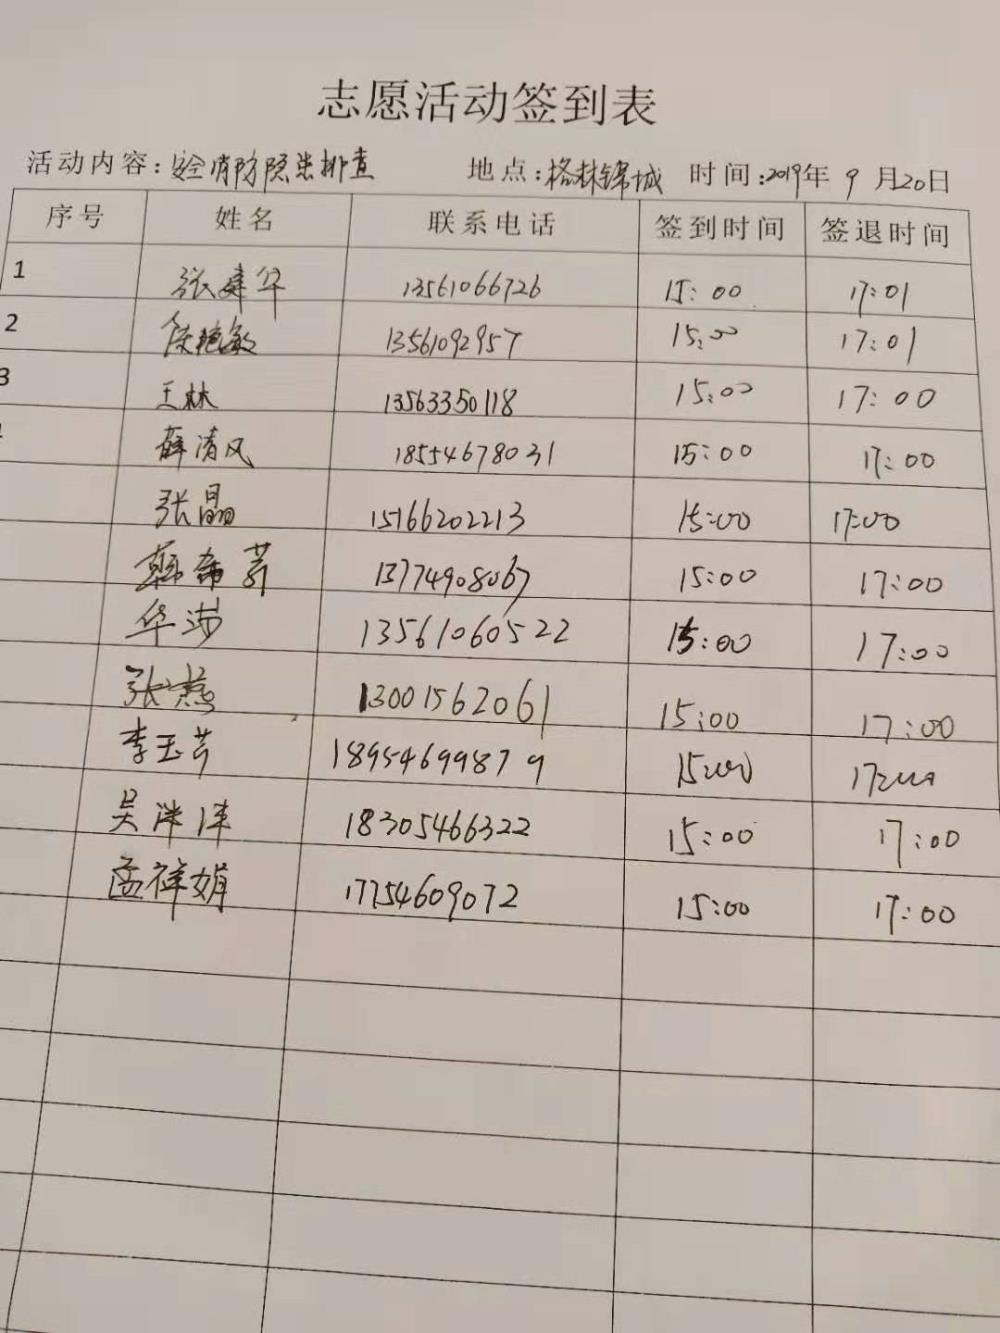 志愿活动签到表
活动内容:安全消防隐患排查 地点:格林锦城 时间:2019年9月20日
序号 姓名 联系电话 签到时间 签退时间
1 张建华 13561066726 15:00 17:01
2 侯艳敏 13561092957 15:00 17:01
3 王林 13563350118 15:00 17:00
薛清风 18554678031 15:00 17:00
张晶 15166202213 15:00 17:00
韩希芹 13774908067 15:00 17:00
华莎 13561060522 15:00 17:00
张燕 13001562061 15:00 17:00
李玉芹 18954699879 15:00 17:00
吴洪泽 18305466322 15:00 17:00
孟祥娟 17754609072 15:00 17:00